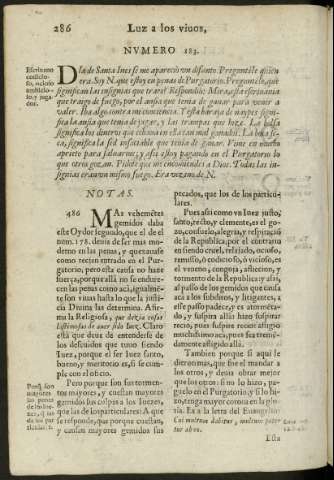 286 Luz a los viuos,
NVMERO 183.
Dia de Santa Ines se me apareciò vn difunto. Preguntèle quien
era. Soy N. que estoy en penas de Purgatorio. Preguntèle, què
significan las insignias que traes? Respondiò: Mira, esta
que traigo de fuego, por el ansia que tenia de ganar para venir a
valer. Iba algo contra mi conciencia. Y esta baraja de naypes signifi-
ca la ansia que tenia de jugar, y las trampas que hize. La bolsa
significa los dineros que echaua en ella tan mal ganados. La boca se-
ca, significa la sed insaciable que tenia de ganar. Vime en mucho
aprieto para saluarme; y assi estoy pagando en el Purgatorio lo
que otros gozan. Pidele que me encomienden a Dios. Todas las in-
signias eran vn mismo fuego. Era vezino de N.
NOTAS.
486 MAs vehemētes
gemidos daba
este Oydor segundo, que el de el
num. 178. deuia de ser mas mo-
derno en las penas, y quexauase
como recien entrado en el Pur-
gatorio, pero esta causa no haze
fuerça, porque allà no se endure-
cen las penas como acà, igualmē-
te son viuas hasta lo que la justi-
cia Diuina las determina. Afir-
ma la Religiosa, que dezia cosas
lastimosas de auer sido Iuez. Claro
està que deue de entenderse de
los descuidos que tuuo siendo
Iuez, porque el ser Iuez santo,
bueno, y meritorio es, si se cum-
ple con el oficio.
Pero porque son sus tormen-
tos mayores, y cuestan mayores
gemidos sus culpas a los Iuezes,
que las de los particulares: A que
se responde, que porque cuestan,
y causan mayores gemidos sus
pecados, que los de los particu-
lares.
Pues assi como vn Iuez justo,
santo, recto, y clemente, es el go-
zo, consuelo, alegria, y respiraciō
de la Republica, por el contrario
en siendo cruel, relaxado, ocioso,
remisso, ò codicioso, ò vicioso, es
el veneno, congoja, afliccion, y
tormento de la Republica; y assi,
al passo de los gemidos que causa
acà a los subditos, y litigantes, a
esse passo padece, y es atormēta-
do, y suspira allà: hizo suspirar
necio, pues suspire recien afligiò
muchissimo acà, pues sea tremēda-
mente afligido allà.
Tambien porque si aqui le
dieron mas, que fue el mandar a
los otros, y deuia obrar mejor
que los otros; y no lo hizo, pa-
guelo en el Purgatorio, y si lo hi-
zo, tenga mayor corona en la glo-
ria. Es a la letra del Euangelio:
Cui multum dabitur, multum pete-
tur ab eo.
Esta